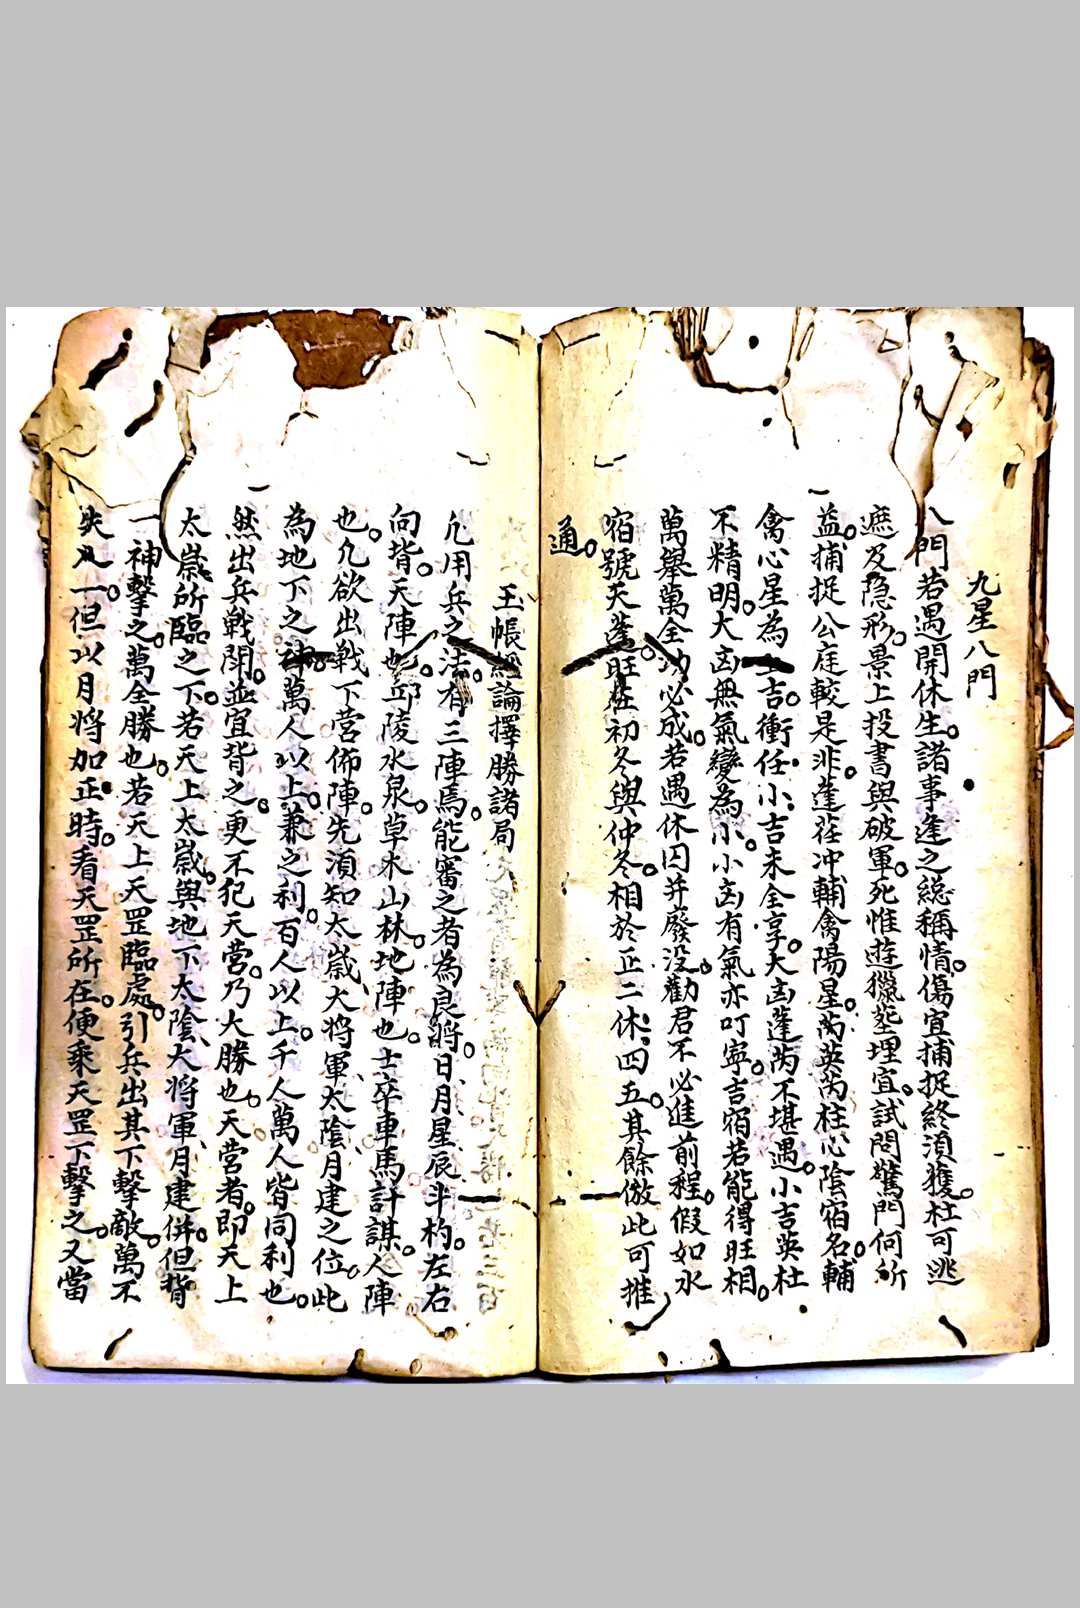 九星八門
八門若遇開休生。諸事逢之総稱情。傷宜捕捉終湏獲。杜可逃
遮及隐形。景上投書與破軍。死惟遊獵塟埋宜。試問驚門何所
益。捕捉公庭較是非。蓬茬冲輔禽陽星。芮英芮柱心陰宿名。輔
禽心星為上吉。衝任小吉未全享。大凶蓬芮不堪遇。小吉英杜
不精明。大凶無氣變為小。小凶有氣亦叮寧。吉宿若能得旺相。
萬舉萬全功必成。若遇休囚并廢没。勸君不必進前程。假如水
宿號天蓬。旺在初冬與仲冬。相於正二休。四五。其餘倣此可推
通。
玉帳經論擇勝諸局
凢用兵之法。有三陣焉。能審之者為良將。日月星辰斗杓。左右
向背。天陣也。邱陵水泉。草木山林。地陣也。士卒車馬計謀。人陣
也。凢欲出戰下营佈陣。先湏知太歲、大将軍太陰、月建之位。此
為地下之神。萬人以上。兼之利。百人以上。千人萬人皆同利也。
然出兵戰闘。並宜背之。更不犯天营。乃大勝也。天营者。即天上
太嵗所臨之下。若天上太嵗。與地下太陰、大将軍、月建併。但背
一神擊之。萬全勝也。若天上天罡臨處。引兵出其下擊敵。萬不
失一。但以月将加正時。看天罡所在。便乘天罡下擊之。又當